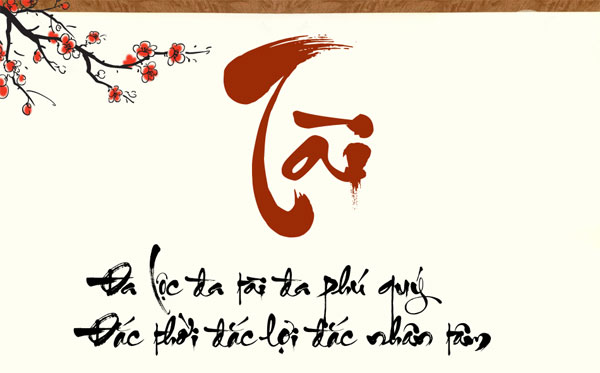 Tài
Đa lộc đa tài đa phú quý
Đắc thời đắc lợi đắc nhân tâm